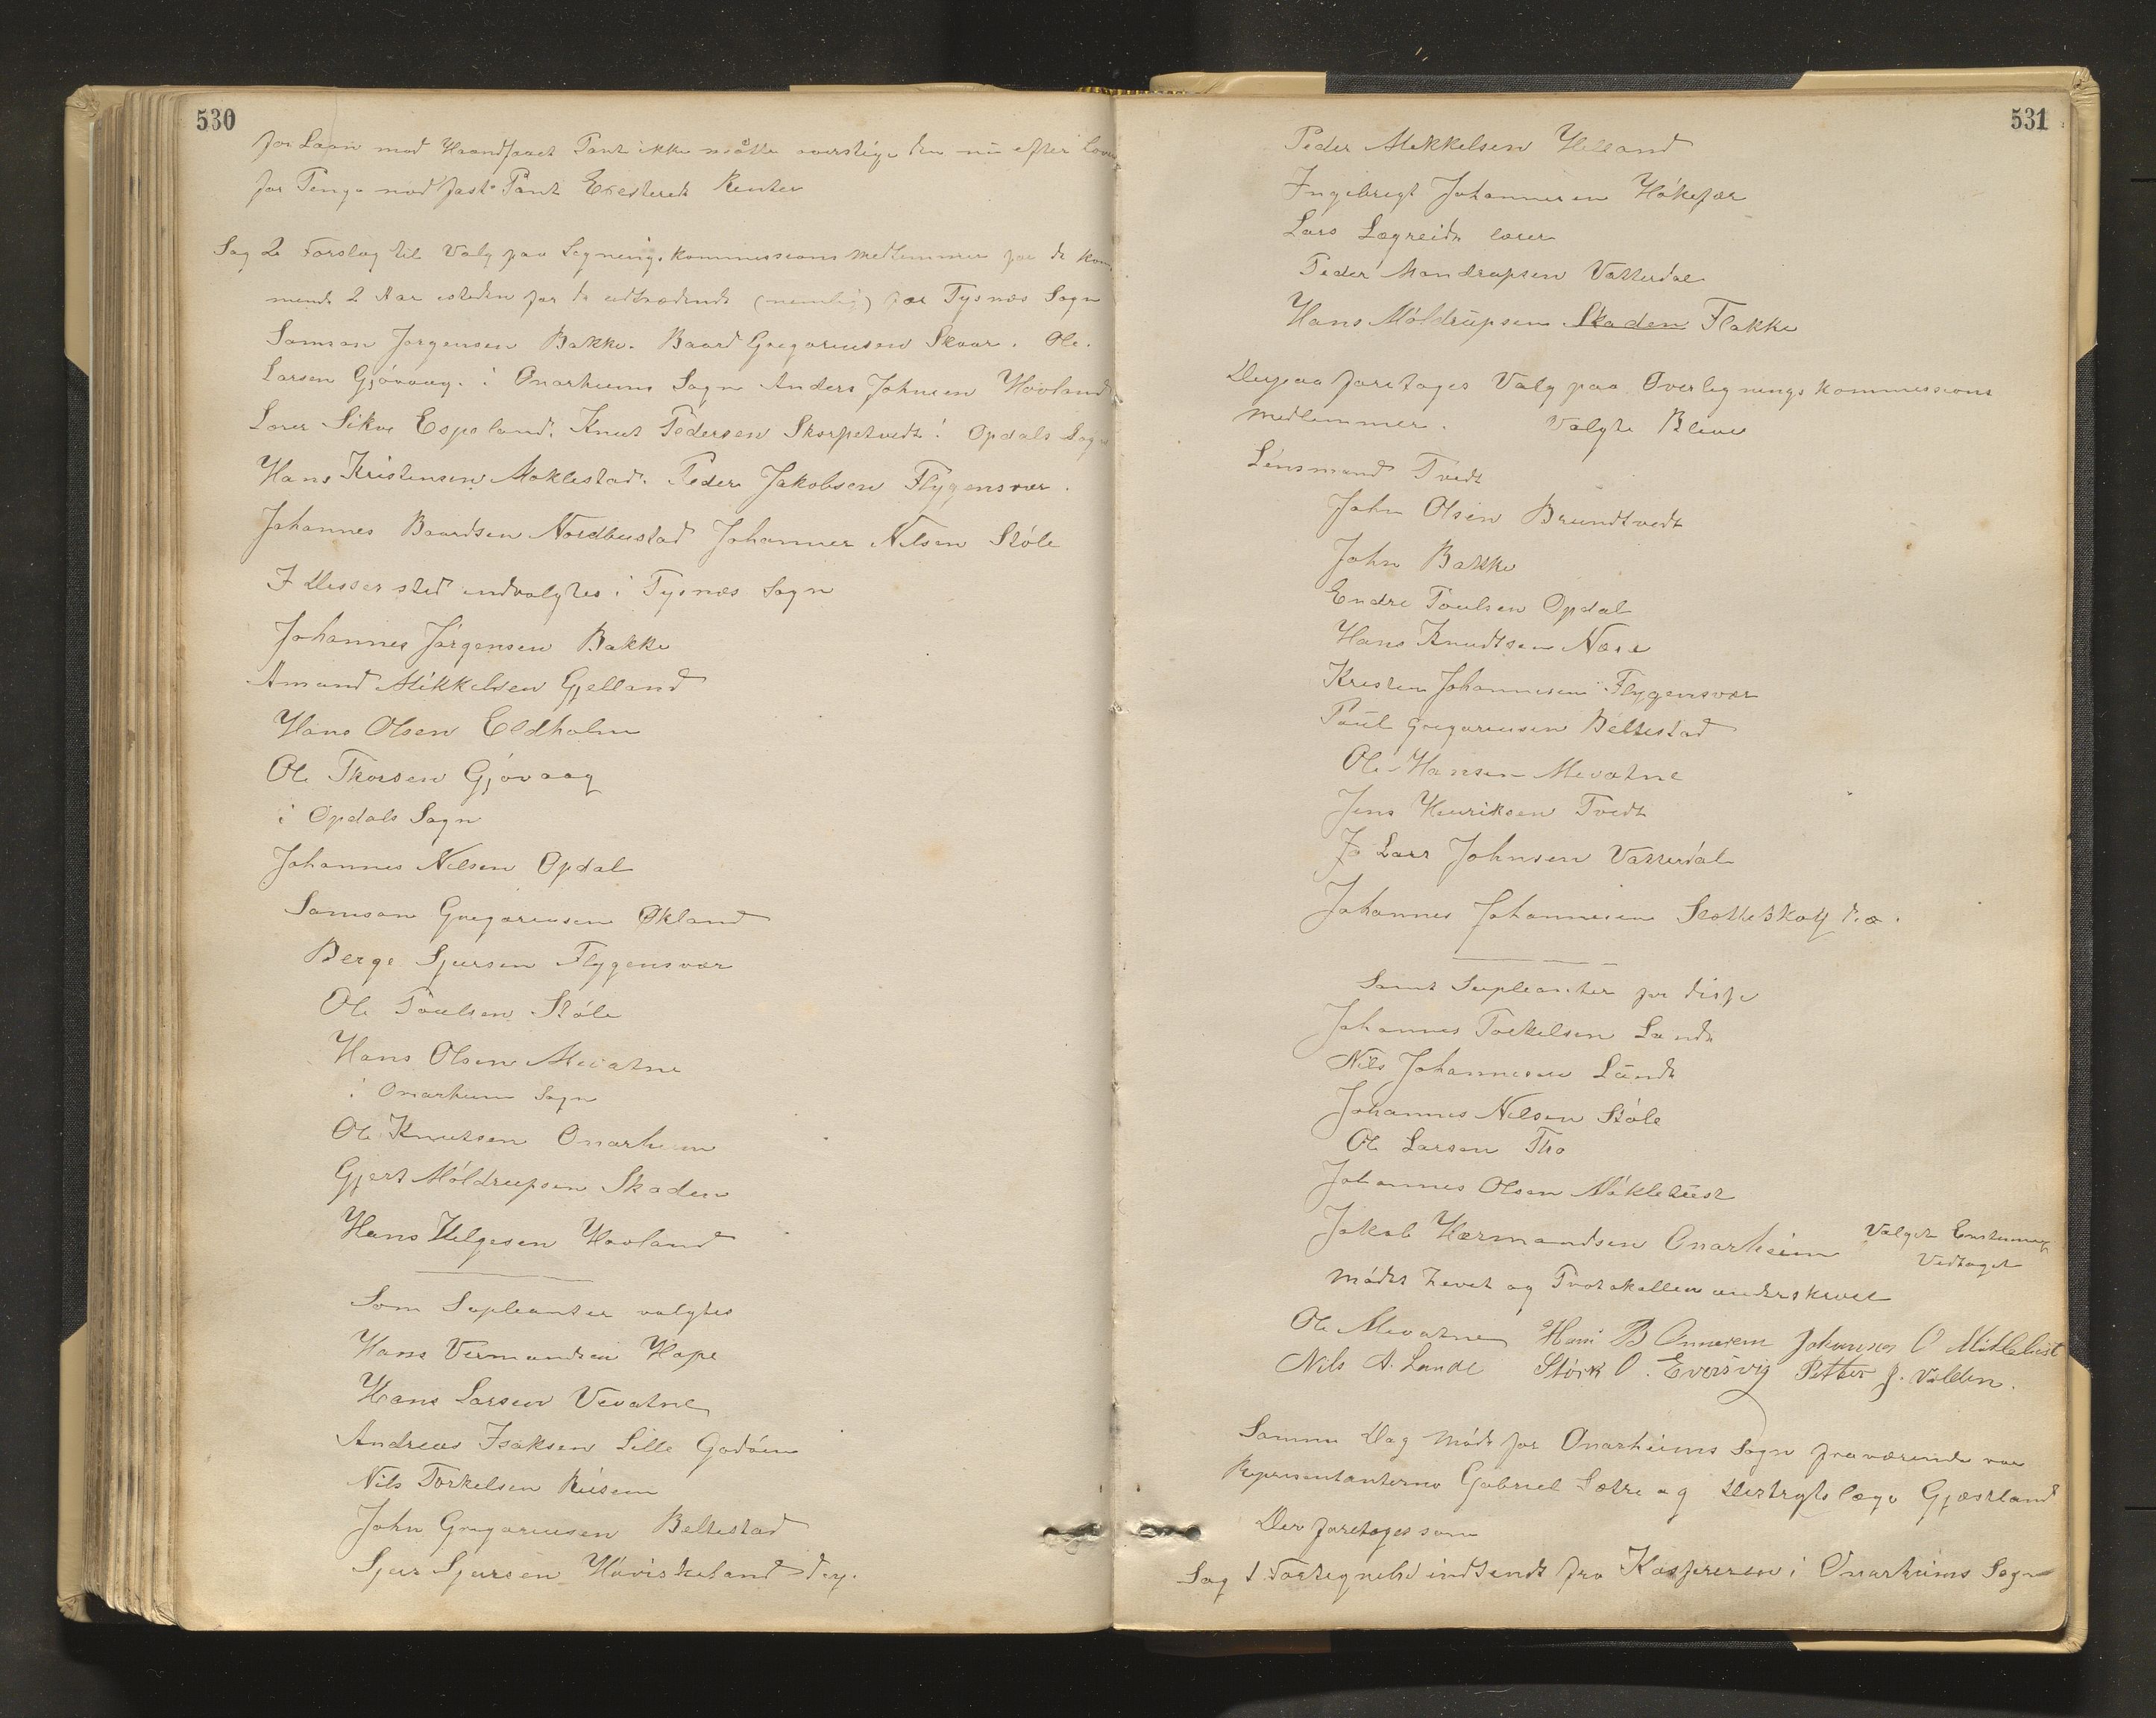 530
for Laan mod Haandfaaet Pant ikke måtte overstige den nu efter Loven
for Penge mod fast Pant Existerede Renter
Sag 2 Forslag til Valg paa Ligningskommissions Medlemmer for de kom
mende 2 Aar isteden for de udtrædende (nemlig) for Tysnæs Sogn
Samson Jørgensen Bakke. Baard Gregoriusen Skaar. Ole
Larsen Gjøvaag. i Onarheims Sogn Anders Johnsen Hovland
Lærer Sikve Espeland. Knut Pedersen Skorpetvedt i Opdals Sogn
Hans Kristensen Møklestad. Peder Jakobsen Flygensvær.
Johannes Baardsen Nordbustad Johannes Nilsen Støle
I Disses sted indvalgtes i Tysnæs Sogn
Johannes Jørgensen Bakke
Amund Mikkelsen Gjelland
Hans Olsen Eldholm
Ole Thorsen Gjøvaag
i Opdals Sogn
Johannes Nilsen Opdal
Samson Gregoriusen Økland
Berge Sjursen Flygensvær
Ole Poulsen Støle
Hans Olsen Mevatne
i Onarheim Sogn
Ole Knutsen Onarheim
Gjert Møldrupsen Skaden
Hans Helgesen Hovland
Som Supleanter valgtes
Hans Vermundsen Hope
Hans Larsen Vevatne
Andreas Isaksen Lille Godøen
Nils Torkelsen Reisem
John Gregoriusen Beltestad
Sjur Sjursen Høviskeland
531
Peder Mikkelsen Helland
Ingebrigt Johannesen Håkefær
Lars Lægreide lærer
Peder Mandrupsen Vatterdal
Hans Møldrupsen Skaden Flakke
Derpaa foretages Valg paa Overligningskommissions
medlemmer. Valgte Bleve
Lensmand Tvedt
John Olsen Brundtvedt
John Bakke
Endre Poulsen Opdal
Hans Knudtsen Næse
Kristen Johannesen Flygensvær
Poul Gregoriusen Beltestad
Ole Hansen Mevatne
Jens Henriksen Tvedt
Lars Johnsen Vatterdal
Johannes Johannesen
Samt Supleanter for disse
Johannes Torkelsen Lande
Nils Johannesen Lunde
Johannes Nilsen Støle
Ole Larsen Tho
Johannes Olsen Mikletust
Jakob Hermandsen Onarheim Valget Enstemmig
Vedtaget
Mødet hevet og Protokollen underskrevet
Ole Mevatne Hans B Onnarem Johannes O Mikletust
Nils A. Lande Størk O. Eversvig Petter J. Valden.
Samme Dag Møde for Onarheims Sogn fraværende var
Representanterne Gabriel Sætre og Destrigtslæge Gjæstland
Der foretoges som
Sag 1. Fortegnelse indsendt fra Kasfereren i Onarheims Sogn